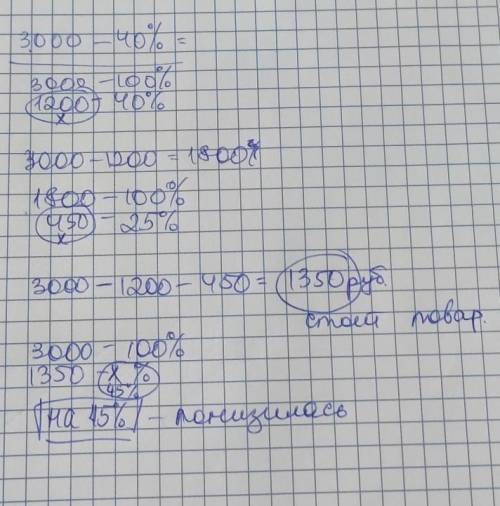 3000 – 40% =
3000 – 100%
1200 – 40%
x
3000 – 1200 = 1800
1800 – 100%
450 – 25%
x
3000 – 1200 – 450 = 1350 руб.
стоит товар.
3000 – 100%
1350 – x %
45%
на 45% – понизилась